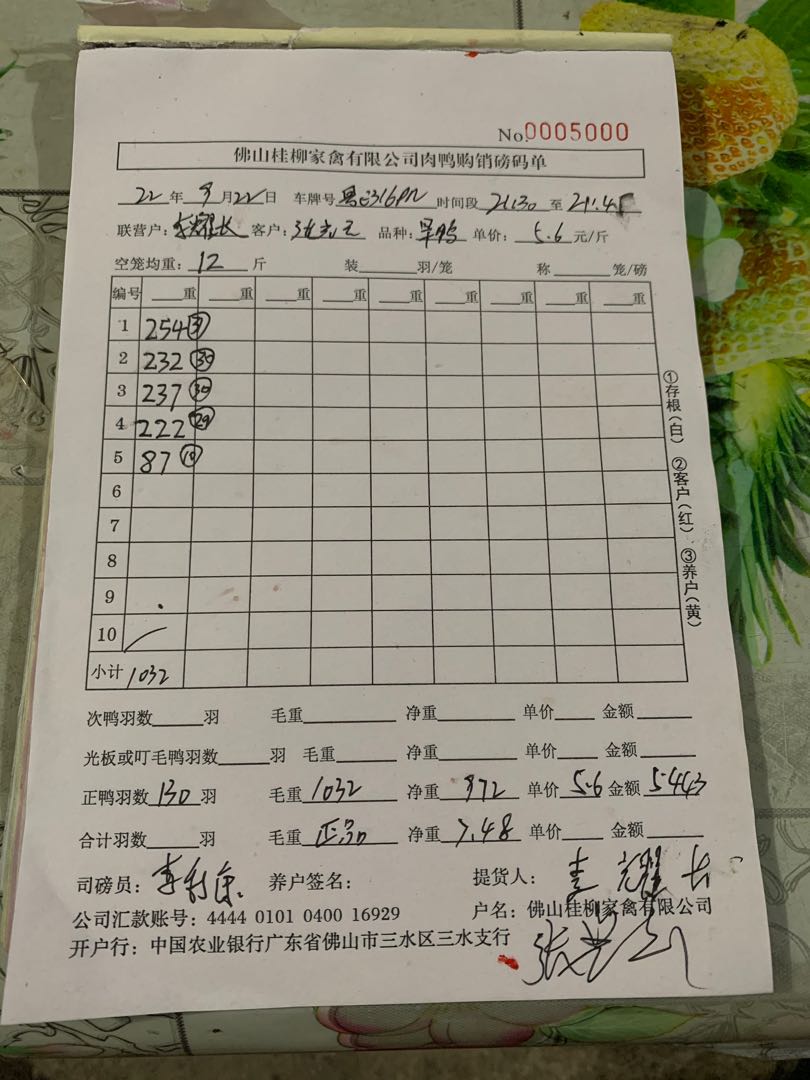 No.0005000
佛山桂柳家禽有限公司肉鸭购销磅码单
22 年 9 月 22 日 车牌号 时间段 21:30 至 21:45
联营户: 李耀长 客户: 品种: 旱鸭 单价: 5.6 元/斤
空笼均重: 12 斤 装 羽/笼 称 笼/磅
编号 重 重 重 重 重 重 重 重 重
1 254
2 232 30
3 237 30
4 222 29
5 87 10
6
7
8
9
10
小计 1032
①存根(白) ②客户(红) ③养户(黄)
次鸭羽数 羽 毛重 净重 单价 金额
光板或叮毛鸭羽数 羽 毛重 净重 单价 金额
正鸭羽数 130 羽 毛重 1032 净重 972 单价 5.6 金额 5443
合计羽数 羽 毛重 净重 7.48 单价 金额
司磅员: 养户签名: 提货人: 李耀长
公司汇款账号: 4444 0101 0400 16929 户名: 佛山桂柳家禽有限公司
开户行: 中国农业银行广东省佛山市三水区三水支行